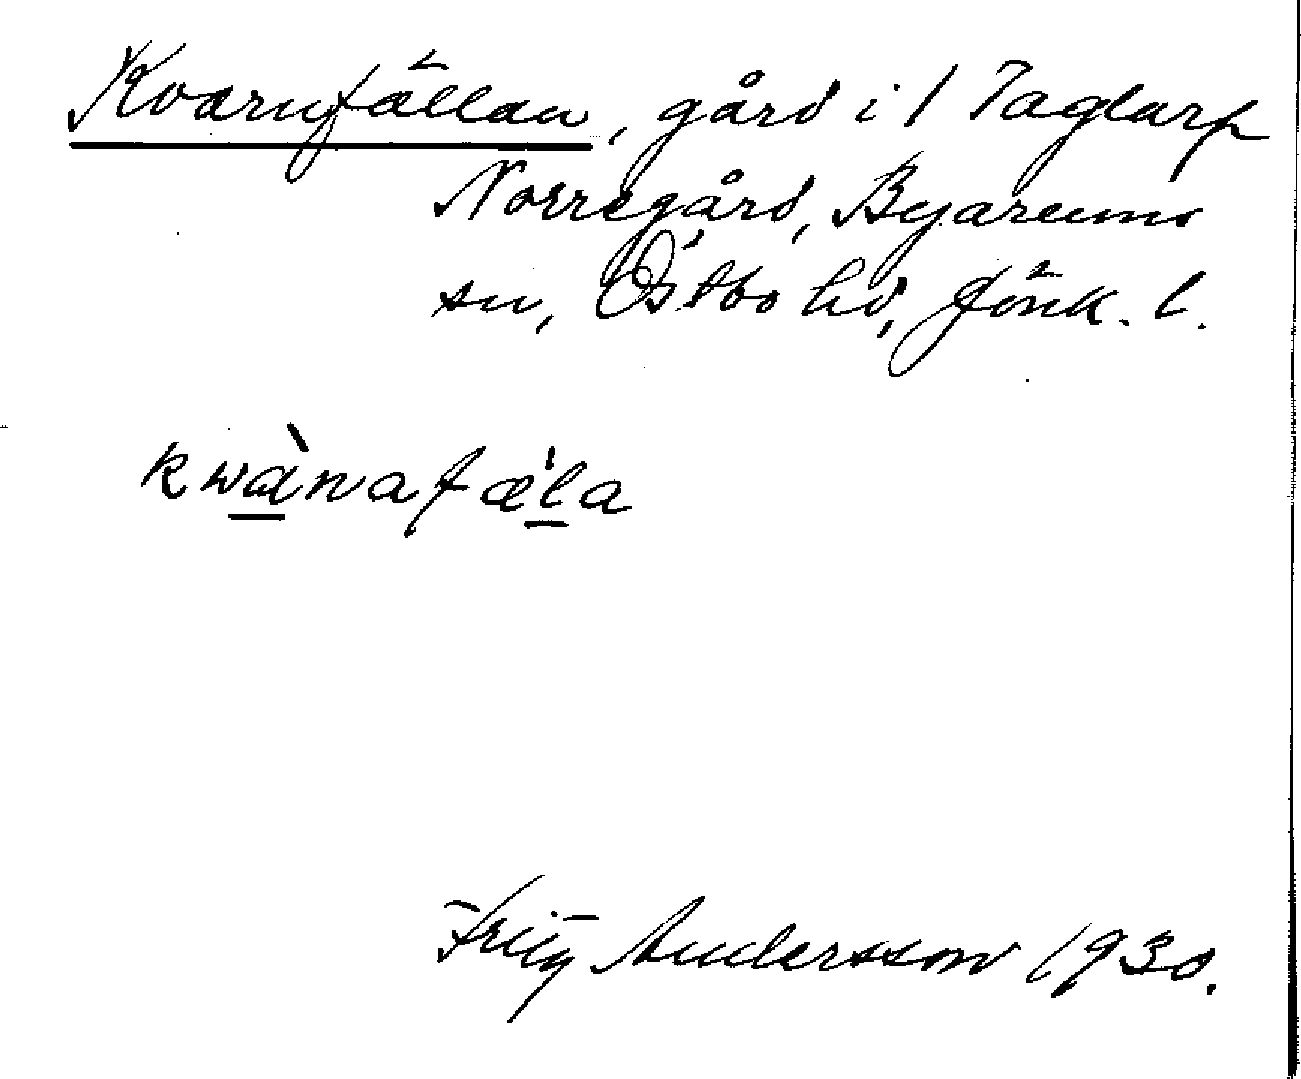 Kvarnfällan, gård i 1 Taglarp
Norregård, Byarums
sn, Östbo hd, Jönk. l.
kwànafæ̀la
Fritz Andersson 1930.